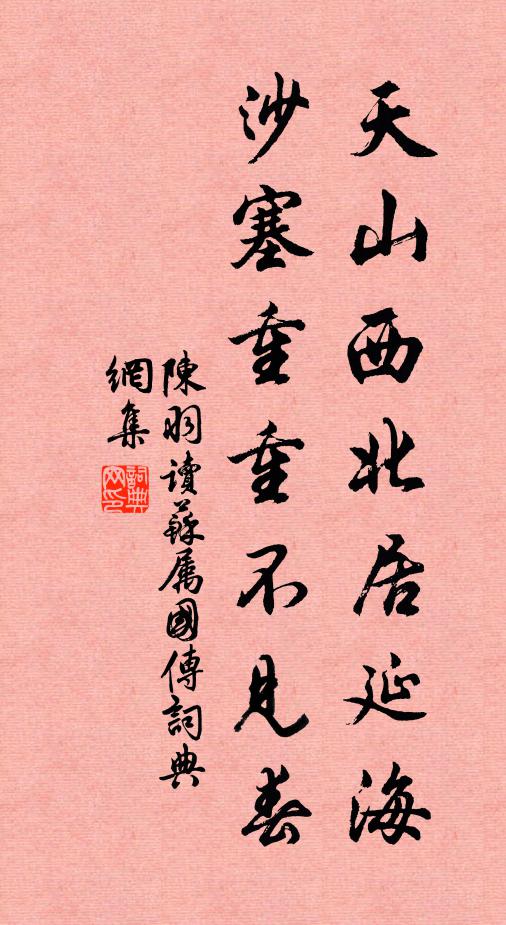 天山西北居延海
沙塞重重不見春
陳羽讀蘇属國傳詞典
網集
詞典网印